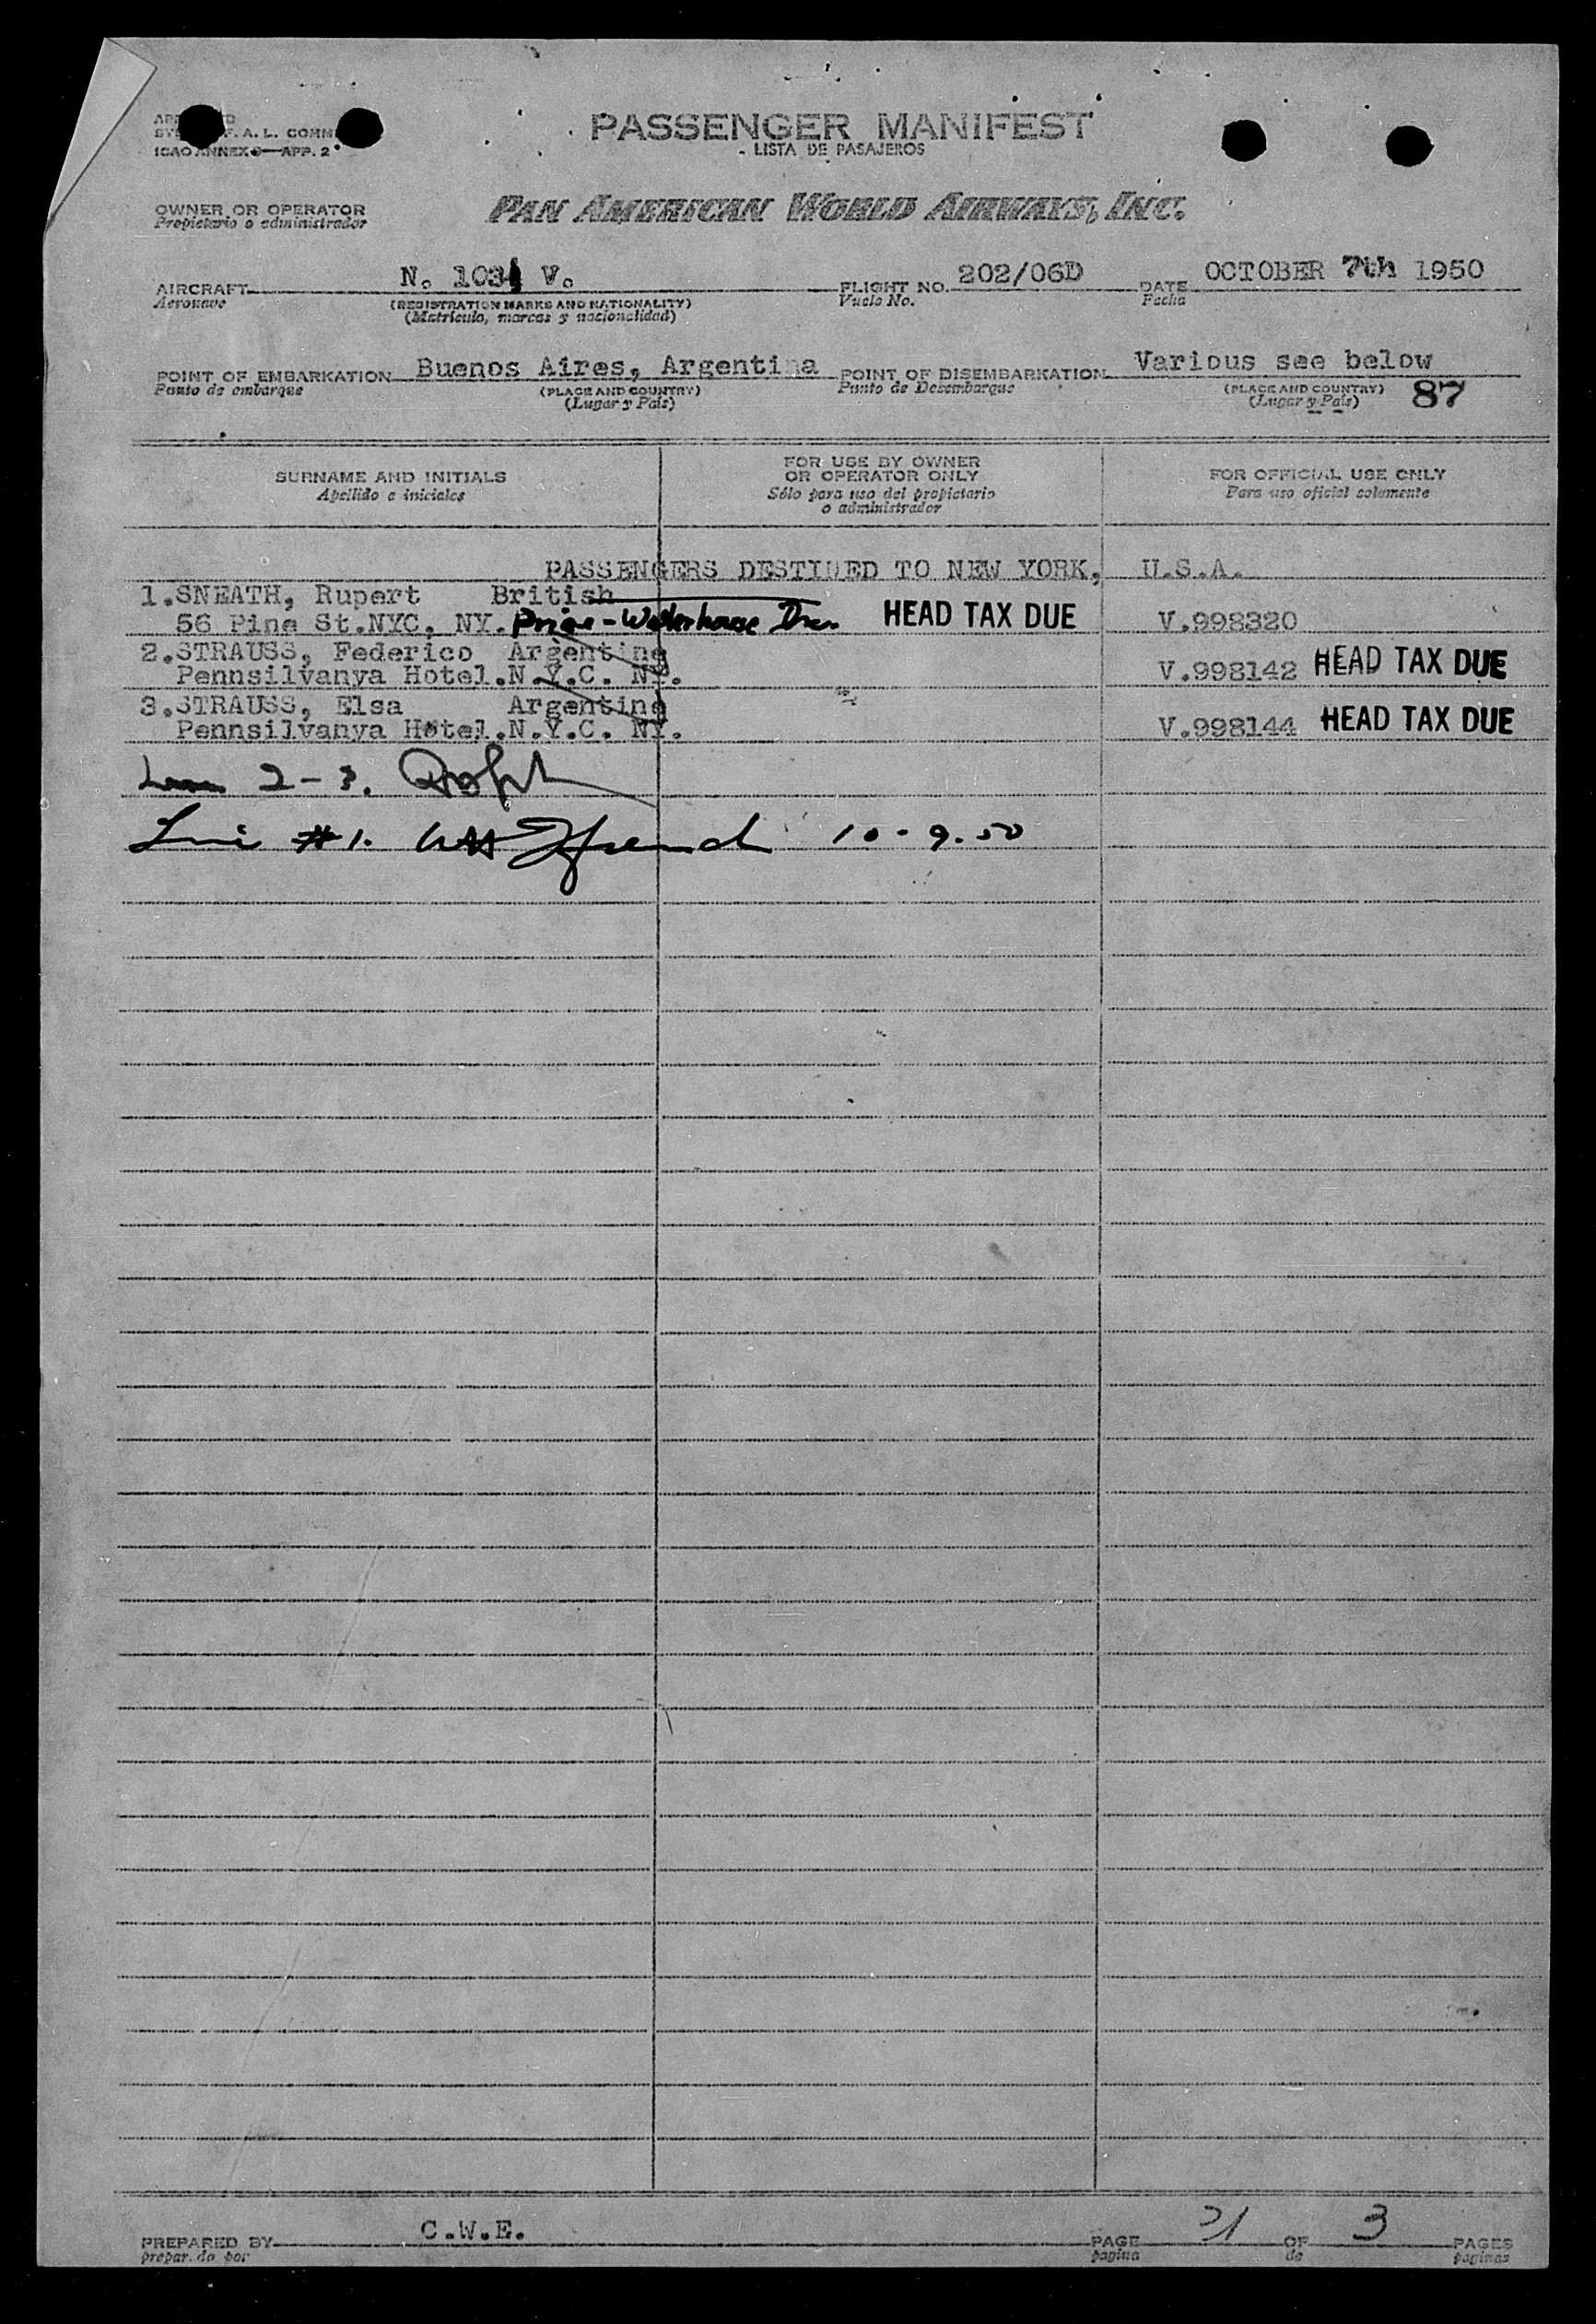 PASSENGER MANIFEST
F. A. L. COMM
ICAO ANNEX 9—APP. 2
LISTA DE PASAJEROS
OWNER OR OPERATOR
Propietario o administrador
PAN AMERICAN WORLD AIRWAYS, INC.
AIRCRAFT N. 103 V. FLIGHT NO. 202/06D DATE OCTOBER 7th 1950
Aeronave (REGISTRATION MARKS AND NATIONALITY) Vuelo No. Fecha
(Matrícula, marcas y nacionalidad)
POINT OF EMBARKATION Buenos Aires, Argentina POINT OF DISEMBARKATION Various see below
Punto de embarque (PLACE AND COUNTRY) Punto de Desembarque (PLACE AND COUNTRY) 87
(Lugar y País) (Lugar y País)
SURNAME AND INITIALS FOR USE BY OWNER OR OPERATOR ONLY FOR OFFICIAL USE ONLY
Apellido e iniciales Sólo para uso del propietario o administrador Para uso oficial solamente
PASSENGERS DESTINED TO NEW YORK, U.S.A.
1.SNEATH, Rupert British
56 Pine St.NYC, NY. Price-Waterhouse HEAD TAX DUE V.998320
2.STRAUSS, Federico Argentina
Pennsilvanya Hotel.N.Y.C. NY. V.998142 HEAD TAX DUE
3.STRAUSS, Elsa Argentina
Pennsilvanya Hotel.N.Y.C. NY. V.998144 HEAD TAX DUE
2-3.
Line #1. 10-9.50
PREPARED BY C.W.E. PAGE OF 3 PAGES
prepar. do por pagina de paginas